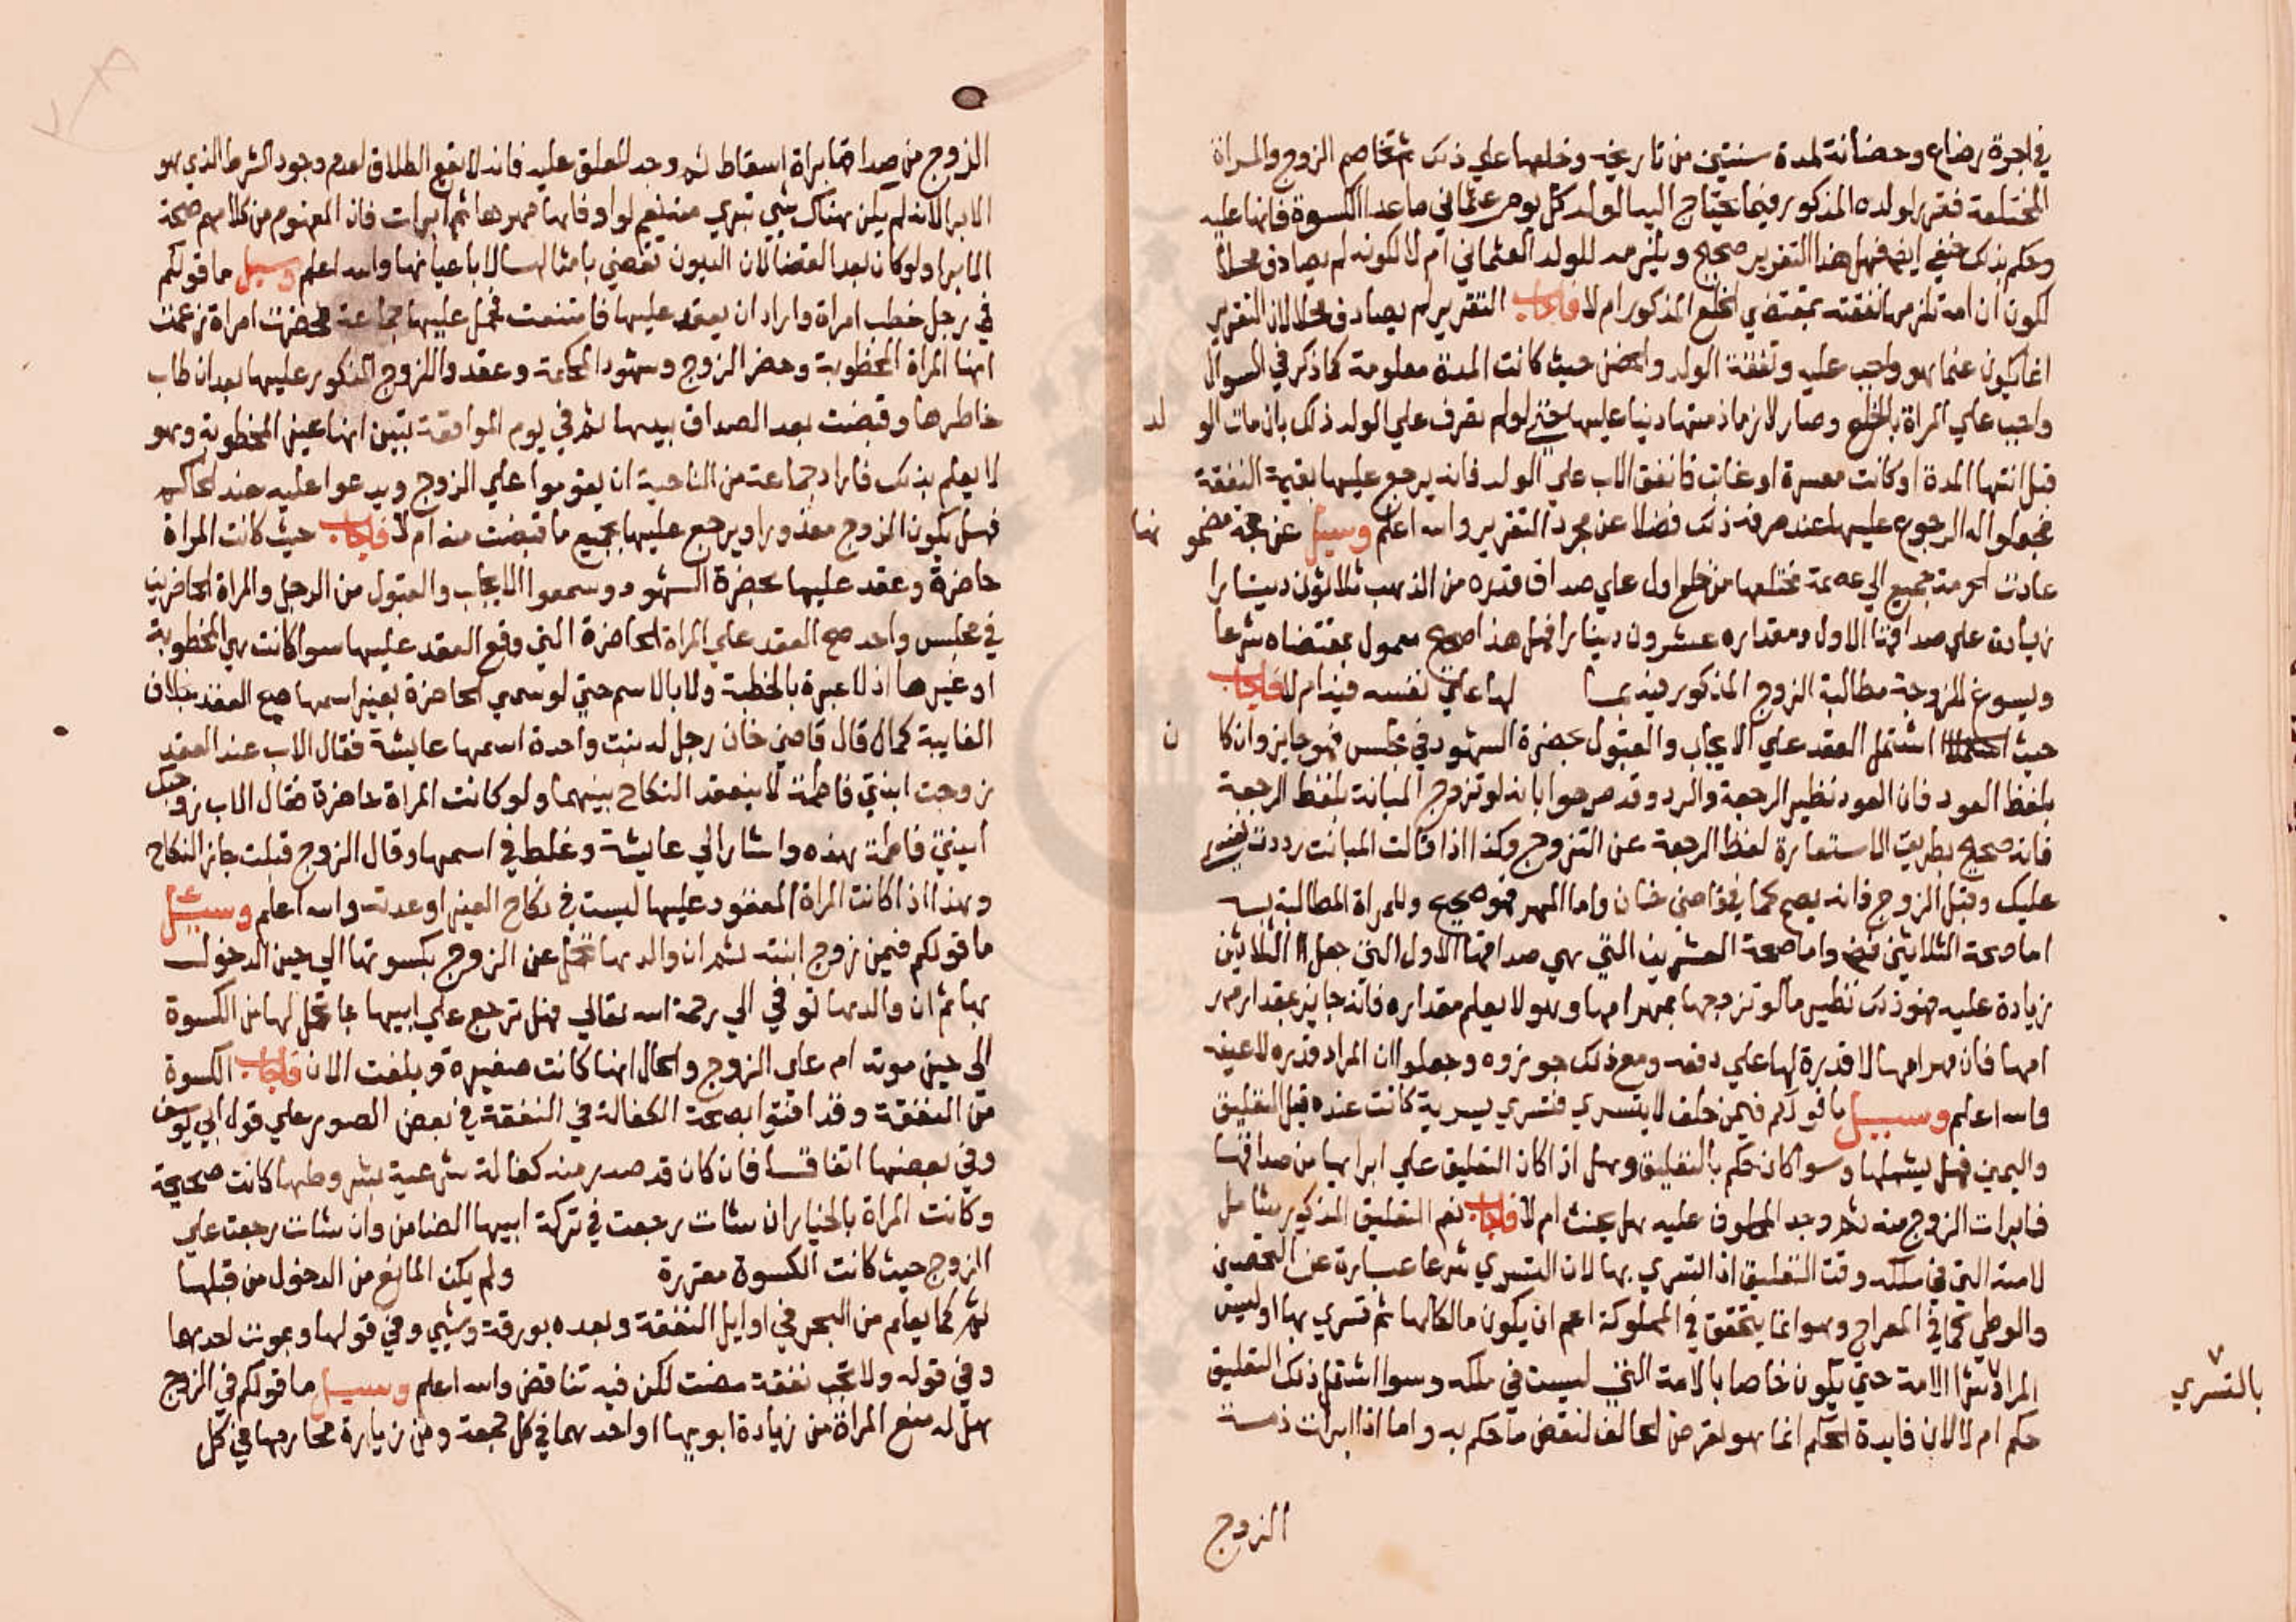 في اجرة رضاع وحضانة لمدة سنتين من تاريخه وخلعها علي ذلك ثم تخاصم الزوج والمراة
المختلعة فقرر لولده المذكور فيما يحتاج اليه الولد كل يوم عثماني ما عدا الكسوة فانها عليه
وحكم بذلك حنفي ايضا فهل هذا التقرير صحيح ويلزمه للولد العثماني ام لا لكونه لم يصادف محلا
لكون ان امه تلزمها نفقته بمقتضي الخلع المذكور ام لا فاجاب التقرير لم يصادف محلا لان التقرير
انما يكون عنما هو واجب عليه ونفقة الولد والحضن حيث كانت المدة معلومة كما ذكر في السوال
واجب علي المراة بالخلع وصار لازما ذمتها دينا عليها حتي لو لم تصرف علي الولد ذلك بان مات الولد
قبل انتها المدة او كانت معسرة او غابت فانفق الاب علي الولد فانه يرجع عليها بقيمة النفقة
فجعلوا له الرجوع عليها عند صرفه ذلك فضلا عن مجرد التقرير والله اعلم وسيل عن حجة مضمونها
عادت الحرمة جميع الي عصمة مختلعها من خلع اول علي صداق قدره من الذهب ثلاثون دينارا
زيادة علي صداقها الاول ومقداره عشرون دينارا فهل هذا صحيح معمول بمقتضاه شرعا
ويسوغ للزوجة مطالبة الزوج المذكور فيه بما لها علي نفسه فيه ام لا فاجاب
حيث اشتمل العقد علي الايجاب والقبول بحضرة الشهود في مجلس فهو جايز وان كان
بلفظ العود فان العود نظير الرجعة والرد وقد صرحوا بانه لو تزوج المبانة بلفظ الرجعة
فانه صحيح بطريق الاستعارة لفظ الرجعة عن التزوج وكذا اذا قالت المبانت رددت نفسي
عليك وقبل الزوج فانه يصح كما في قاضي خان واما المهر فهو صحيح وللمراة المطالبة به
اما صحة الثلاثين فـ واما صحة العشرين التي هي صداقها الاول التي جعل الثلاثين
زيادة عليه فهو ذلك نظير ما لو تزوجها بمهر امها وهو لا يعلم مقداره فانه جايز بمقدار مهر
امها فان مهر امها لا قدرة لها علي دفعه ومع ذلك جوزوه وجعلوا ان المراد قدره لا عينه
والله اعلم وسيل ما قولكم فيمن حلف لا يتسري فتسري بسرية كانت عنده قبل التعليق
واليمين فهل يشملها وسوا كان حكم بالتعليق وهل اذا كان التعليق علي ابرايها من صداقها
فابرات الزوج منه ثم وجد المحلوف عليه هل يحنث ام لا فاجاب نعم التعليق المذكور شامل
لامته التي في ملكه وقت التعليق اذا التسري بها لان التسري شرعا عبارة عن التحصين
والوطي كما في المعراج وهو انما يتحقق في المملوكة اعم ان يكون مالكا لها ثم تسري بها او ليس
المراد بشرا الامة حتي يكون خاصا بالامة التي ليست في ملكه وسوا اشتمل ذلك التعليق
بالتسري
حكم ام لا لان فايدة الحكم انما هو لغرض المخالف لنقض ما حكم به واما اذا ابرات ذمة
الزوج
الزوج من صداقها براة اسقاط ثم وجد المعلق عليه فانه لا يقع الطلاق لعدم وجود الشرط الذي هو
الابرا لانه لم يكن هناك شي تبري منه نعم لو اوفاها مهرها ثم ابرات فان المفهوم من كلامهم صحة
الابرا ولو كان بعد القضا لان الديون تقضي بامثالها لا باعيانها والله اعلم وسيل ما قولكم
في رجل خطب امراة واراد ان يعقد عليها فامتنعت فحمل عليها جماعة فحضرت امراة زعمت
انها المراة المخطوبة وحضر الزوج وشهود المحكمة وعقدوا للزوج المذكور عليها بعد ان طاب
خاطرها وقبضت بعد الصداق بيدها ثم في يوم الموافقة تبين انها غير المخطوبة وهو
لا يعلم بذلك فاراد جماعة من الناحية ان يقوموا علي الزوج ويدعوا عليه عند الحاكم
فهل يكون الزوج معذورا ويرجع عليها بجميع ما قبضت منه ام لا فاجاب حيث كانت المراة
حاضرة وعقد عليها بحضرة الشهود وسمعوا الايجاب والقبول من الرجل والمراة الحاضرين
في مجلس واحد صح العقد علي المراة الحاضرة التي وقع العقد عليها سوا كانت هي المخطوبة
او غيرها اذ لا عبرة بالخطبة ولا بالاسم حتي لو سمي الحاضرة بغير اسمها صح العقد بخلاف
الغايبة كما قال قاضي خان رجل له بنت واحدة اسمها عايشة فقال الاب عند العقد
زوجت ابنتي فاطمة لا ينعقد النكاح بينهما ولو كانت المراة حاضرة فقال الاب زوجتك
ابنتي فاطمة هذه واشار الي عايشة وغلط في اسمها وقال الزوج قبلت جاز النكاح
وهذا اذا كانت المراة المعقود عليها ليست في نكاح الغير او عدته والله اعلم وسيل
ما قولكم فيمن زوج ابنته ثم ان والدها تحمل عن الزوج بكسوتها الي حين الدخول
بها ثم ان والدها توفي الي رحمة الله تعالي فهل ترجع علي ابيها بما تحمل لها من الكسوة
الي حين موته ام علي الزوج والحال انها كانت صغيرة وبلغت الان فاجاب الكسوة
من النفقة وقد افتوا بصحة الكفالة في النفقة في بعض الصور علي قول ابي يوسف
وفي بعضها اتفاقا فان كان قد صدر منه كفالة شرعية بشروطها كانت صحيحة
وكانت المراة بالخيار ان شات رجعت في تركة ابيها الضامن وان شات رجعت علي
الزوج حيث كانت الكسوة مقررة ولم يكن المانع من الدخول من قبلها
ثم كما يعلم من البحر في اوايل النفقة وبعده بورقة وشي وفي قولها وبموت احدهما
وفي قوله ولا تجب نفقة مضت لكن فيه تناقض والله اعلم وسيل ما قولكم في الزوج
هل له منع المراة من زيادة ابويها او احدهما في كل جمعة ومن زيارة محارمها في كل